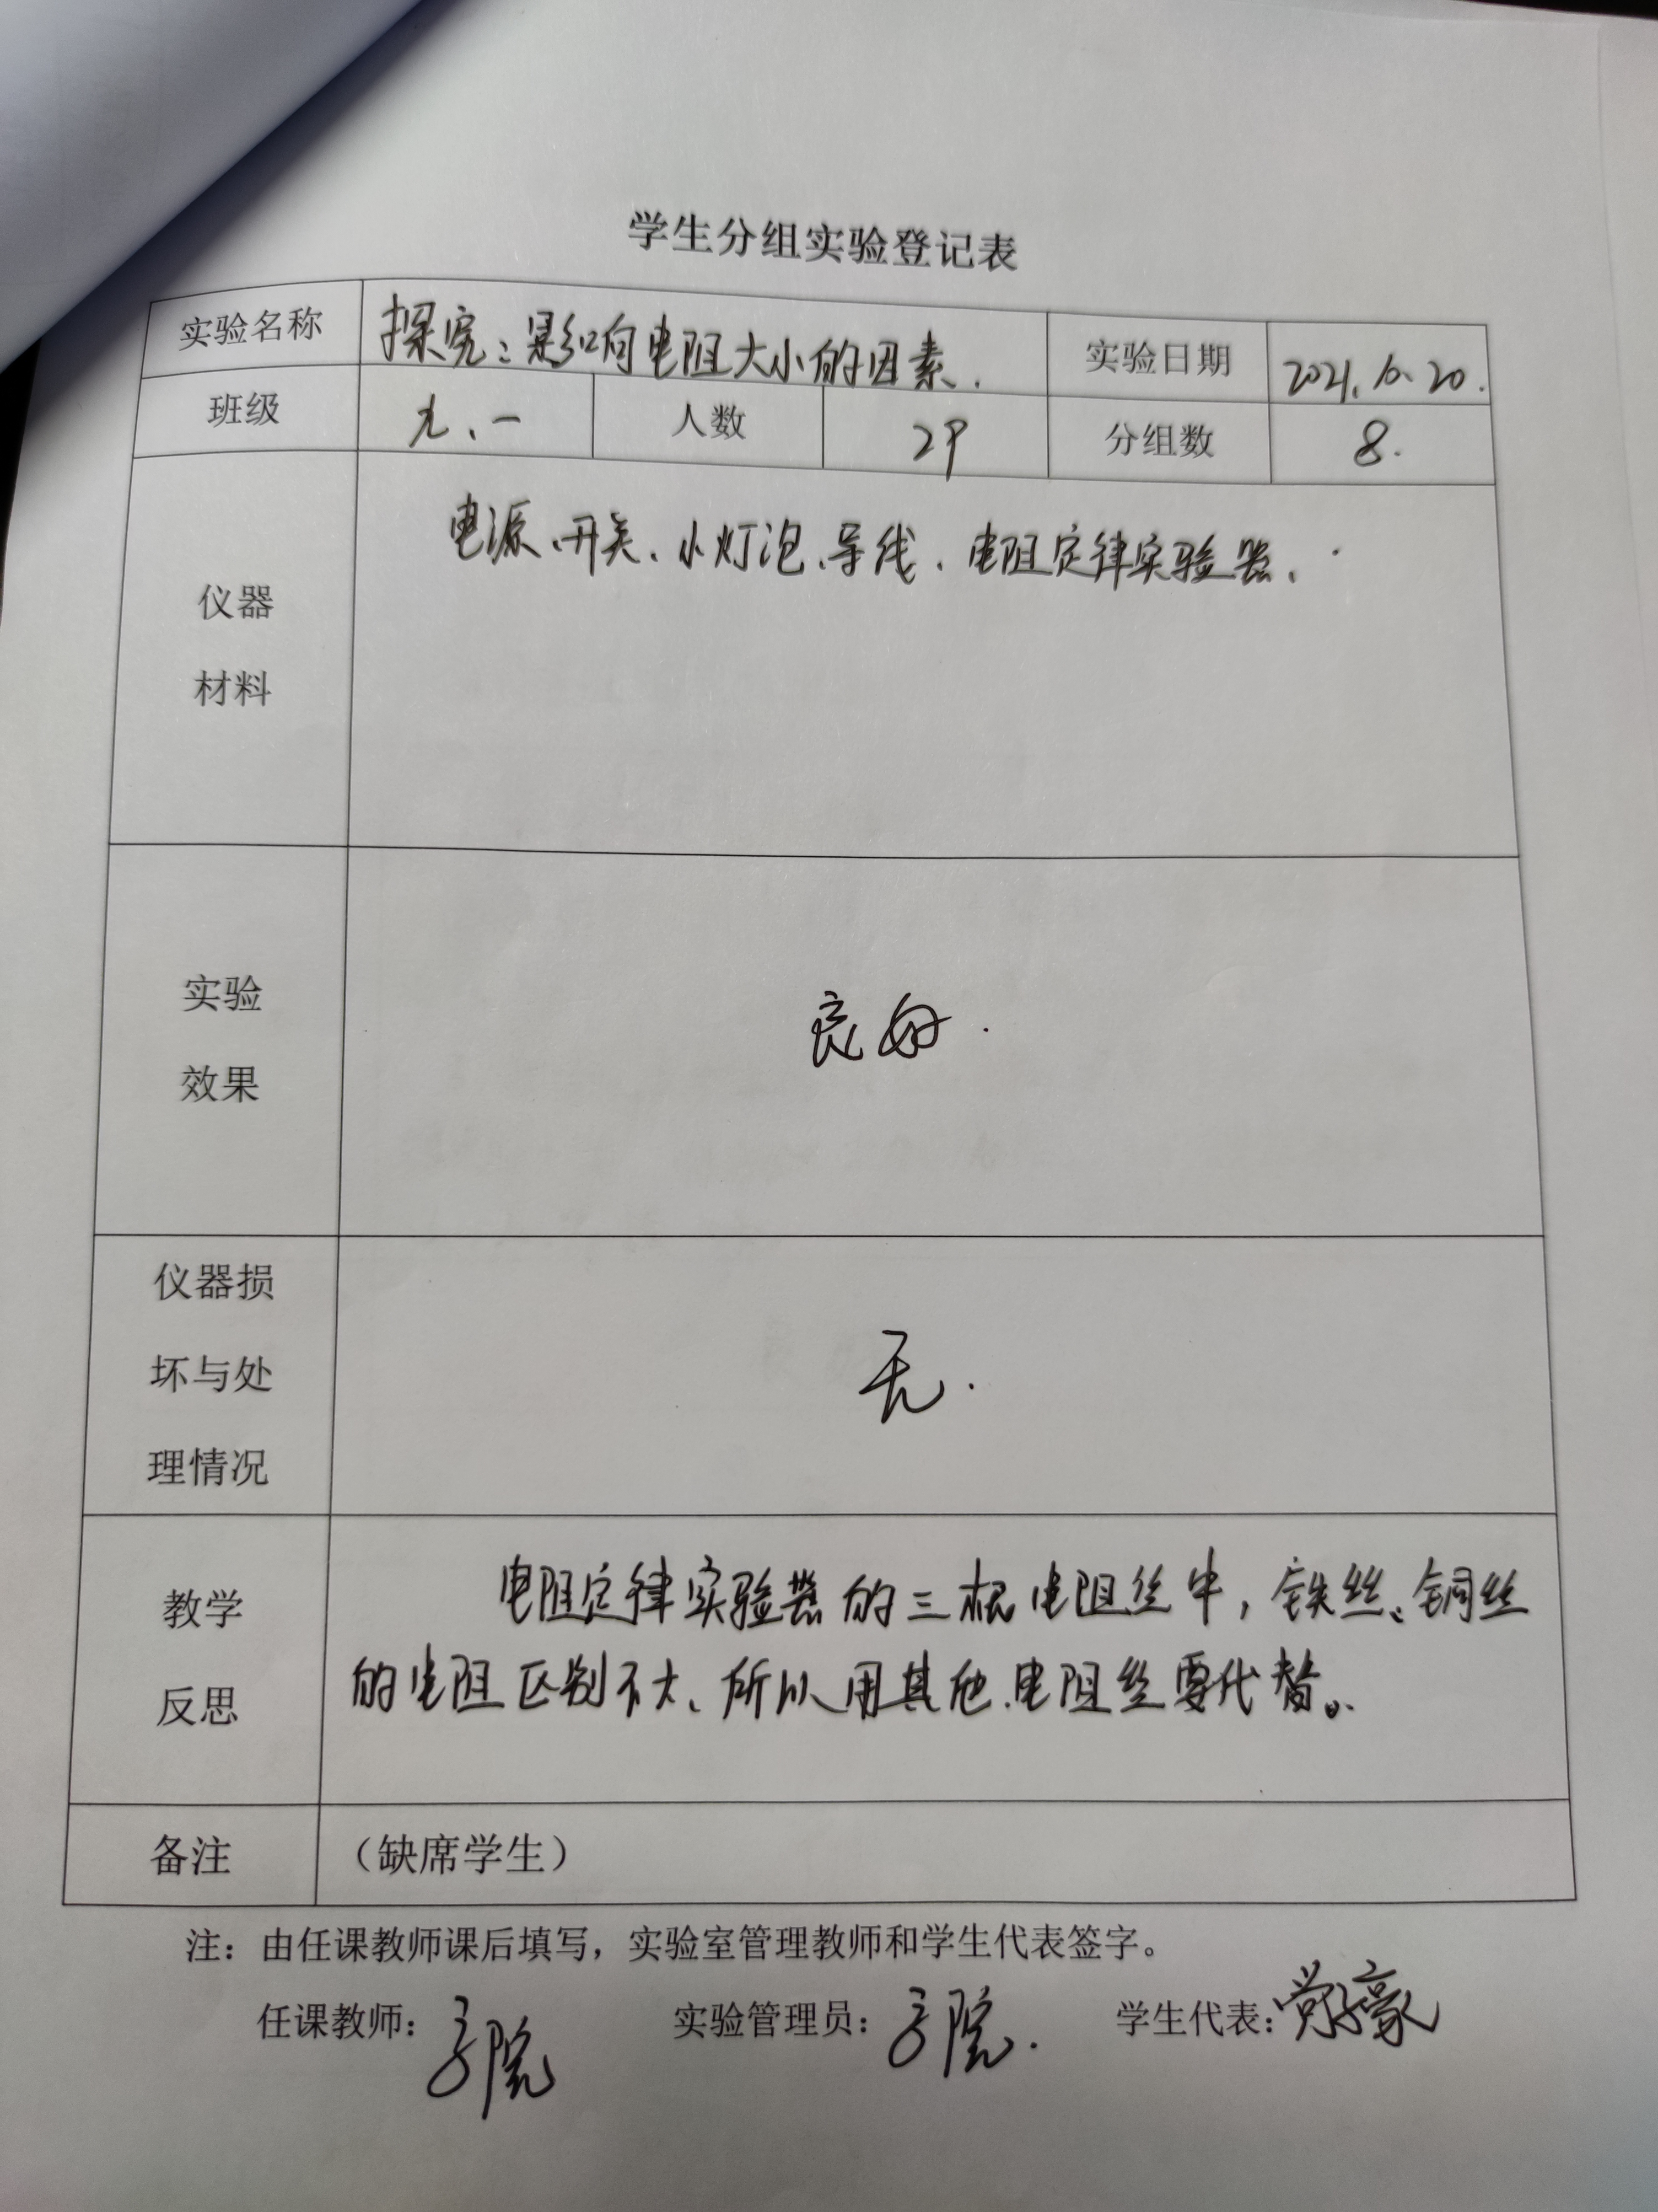 学生分组实验登记表
实验名称 探究：影响电阻大小的因素. 实验日期 2021.10.20.
班级 九.一 人数 29 分组数 8.
仪器
材料
电源、开关、小灯泡、导线、电阻定律实验器.
实验
效果
良好.
仪器损
坏与处
理情况
无.
教学
反思
电阻定律实验器的三根电阻丝中，铁丝、铜丝
的电阻区别不大、所以用其他电阻丝要代替。
备注 （缺席学生）
注：由任课教师课后填写，实验室管理教师和学生代表签字。
任课教师： 实验管理员： 学生代表：